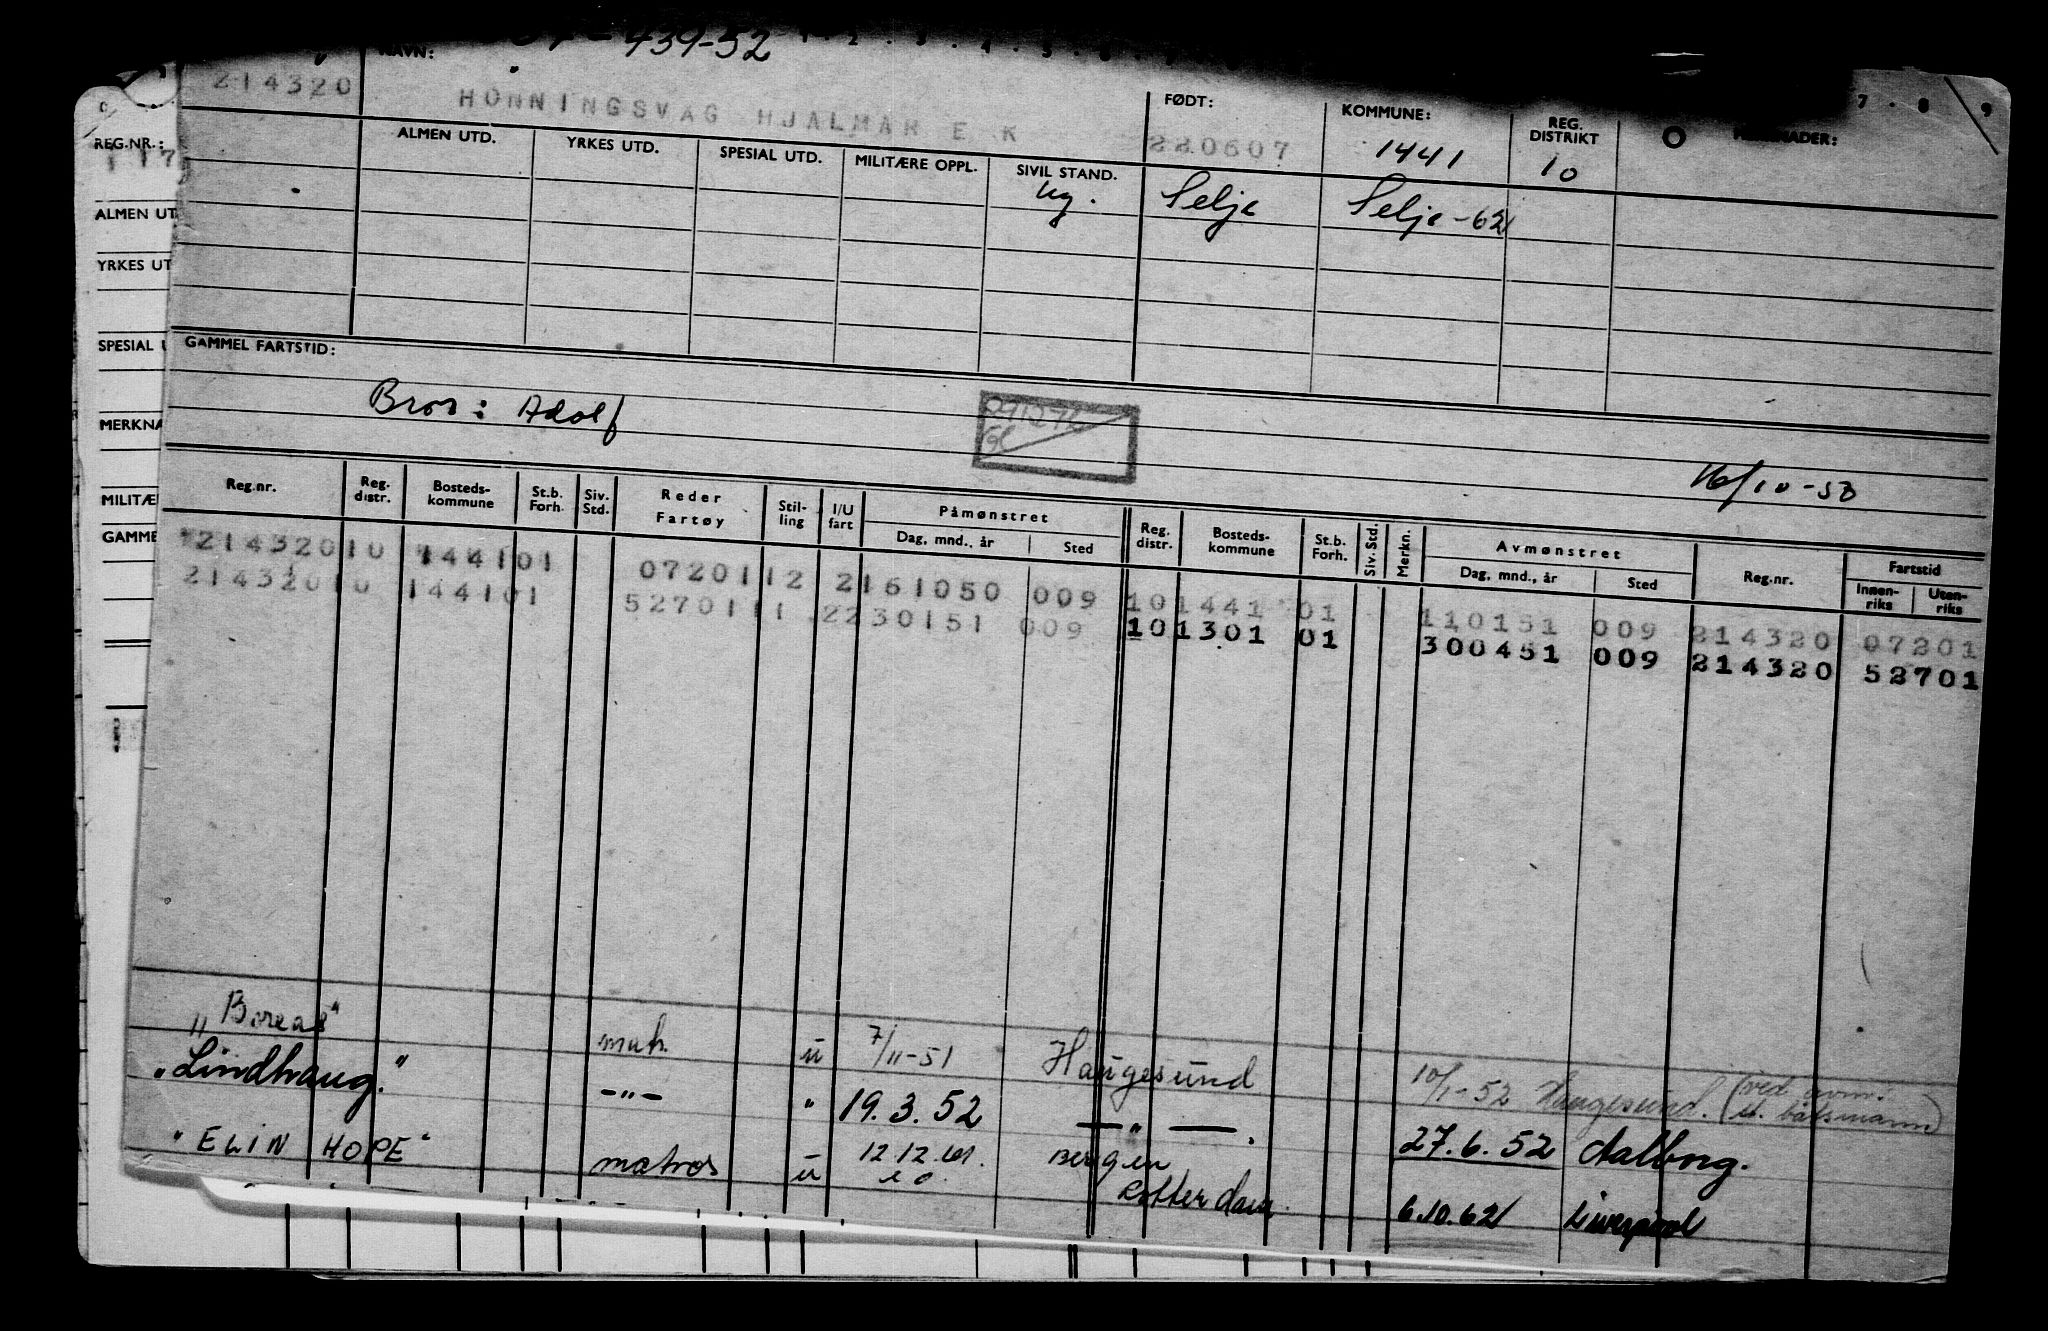 439-52
NAVN:
214320
HONNINGSVAG HJALMAR E K
FØDT:
220607
KOMMUNE:
1441
REG. DISTRIKT
10
7 . 8 9
REG.NR.:
ALMEN UTD. YRKES UTD. SPESIAL UTD. MILITÆRE OPPL. SIVIL STAND.
ug. Selje Selje -62
ALMEN UT
YRKES UT
SPESIAL
MERKNA
MILITÆ
GAMME
GAMMEL FARTSTID:
Bror: Adolf
16/10-53
Reg.nr. Reg. distr. Bosteds-kommune St.b. Forh. Siv. Std. Reder Fartøy Stil-ling I/U fart Påmønstret Dag, mnd., år Sted Reg. distr. Bosteds-kommune St.b. Forh. Siv. Std. Merkn. Avmønstret Dag, mnd., år Sted Reg.nr. Fartstid Innen-riks Uten-riks
21432010 144101 07201 12 2161050 009 101441 01 110151 009 214320 07201
21432010 144101 52701 11 2230151 009 101301 01 300451 009 214320 52701
"Boreas" matr. u 7/11-51 Haugesund 10/1-52 Haugesund. (ved avm. båtsmann)
"Lindhaug." -"- " 19.3.52 -"- . 27.6.52 Aalborg.
"ELIN HOPE" matros u 12.12.61. Bergen
Rotterdam 6.10.62 Liverpool